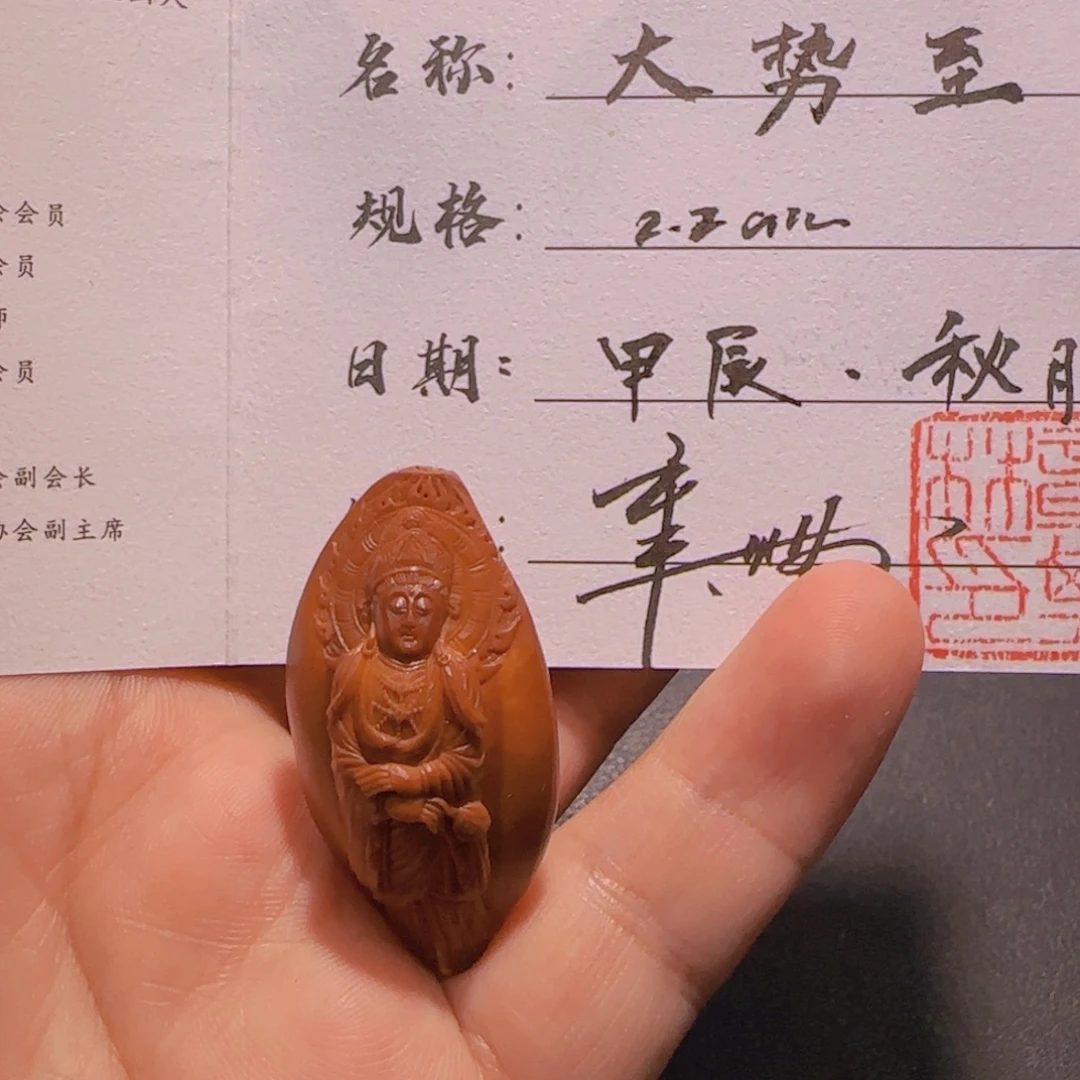 会员
员
师
会员
会副会长
协会副主席
名称：大势至
规格：2.2cm
日期：甲辰·秋月